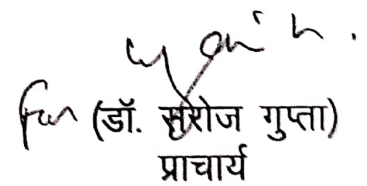 for (डॉ. सरोज गुप्ता)
प्राचार्य